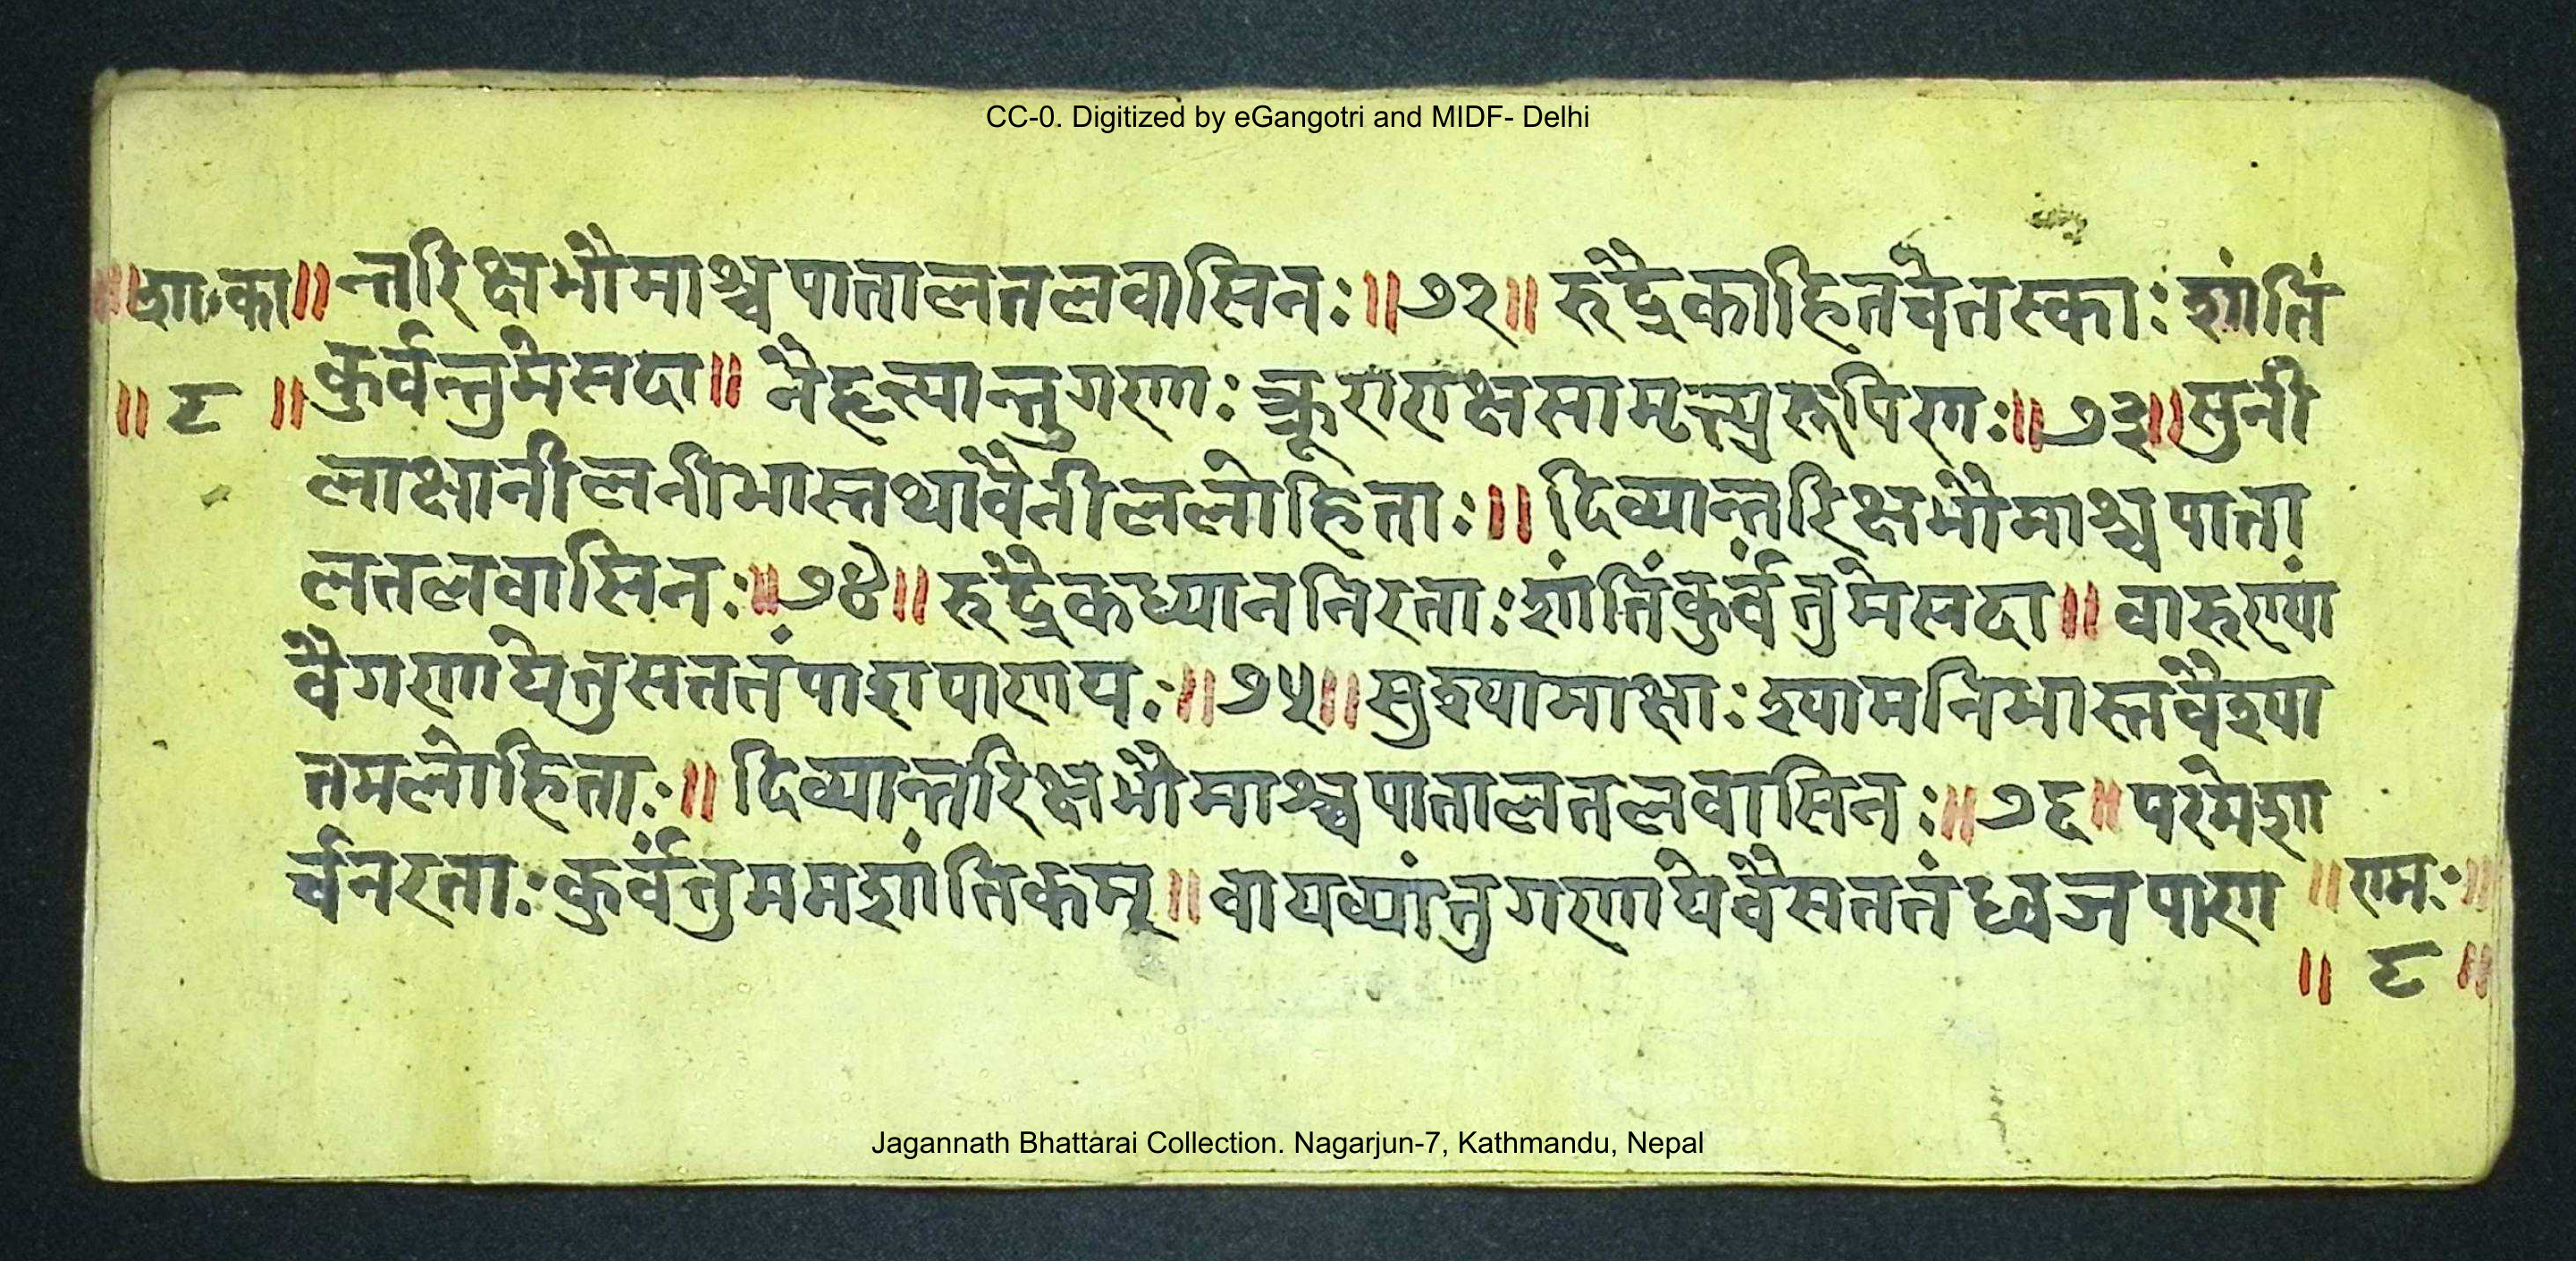 CC-0. Digitized by eGangotri and MIDF- Delhi
॥शा॰का॥ न्तरिक्षभौमाश्च पातालतलवासिनः॥७२॥ रुद्रैकाहितचेतस्काः शांतिं
॥ ८ ॥ कुर्वन्तुमेसदा॥ नैहृत्यान्तुगणाः क्रूराराक्षसामृत्त्युरूपिणः॥७३॥सुनी
लाक्षानीलनीभास्तथावैनीललोहिताः॥ दिव्यान्तरिक्षभौमाश्चपाता
लतलवासिनः॥७४॥ रुद्रैकध्याननिरताः शांतिंकुर्वंतुमेसदा॥ वारुण्यां
वैगणायेतुसततंपाशपाणयः॥७५॥सुश्यामाक्षाः श्यामनिभास्तवैश्या
तमलोहिताः॥ दिव्यान्तरिक्षभौमाश्च पातालतलवासिनः॥७६॥परमेशा
र्चनरताः कुर्वंतुममशांतिकम्॥ वायव्यांतुगणायेवैसततंध्वजपाण ॥ णमः॥
॥ ८ ॥
Jagannath Bhattarai Collection. Nagarjun-7, Kathmandu, Nepal